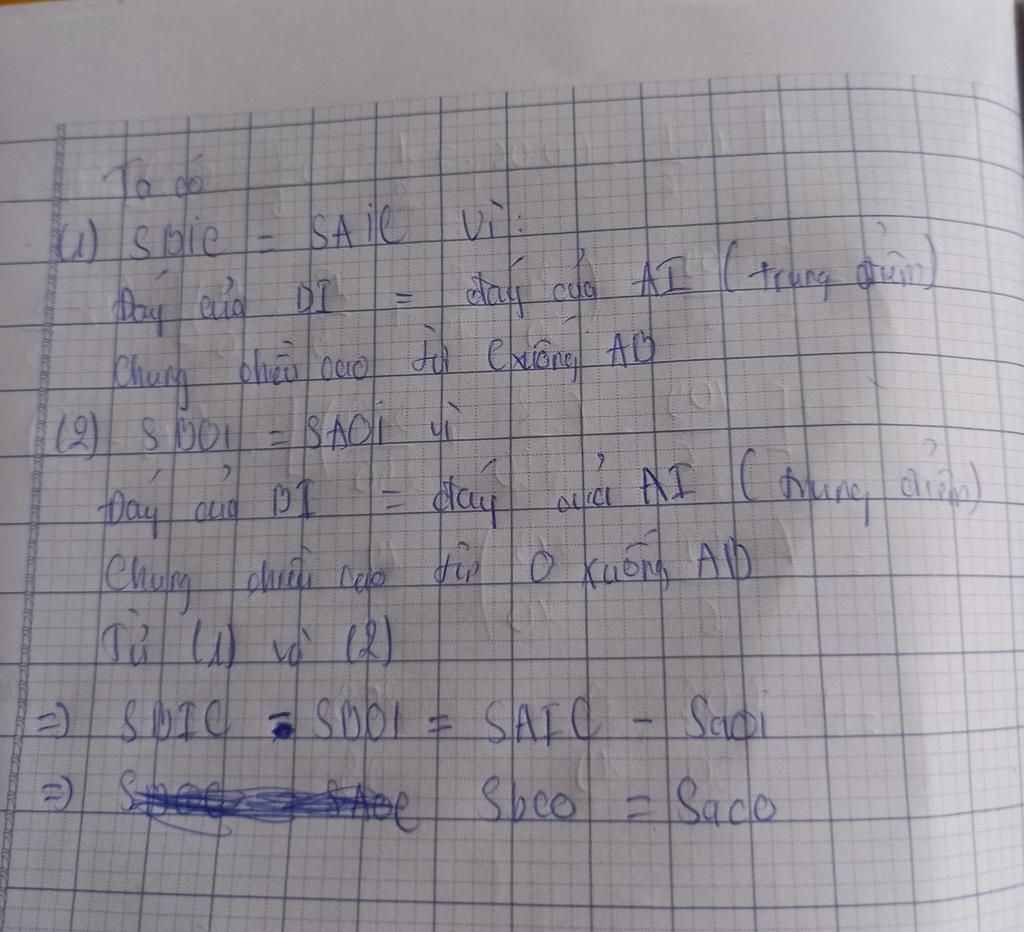 Ta có
(1) SDIC = SAIC Vì:
Đáy của DI = đáy của AI (trung điểm)
Chung chiều cao từ C xuống AD
(2) SDOI = SAOI vì
Đáy của DI = đáy của AI (trung điểm)
Chung chiều cao từ O xuống AD
Từ (1) và (2)
=) SDIC - SDOI = SAIC - Saoi
=) Sdco = Saco